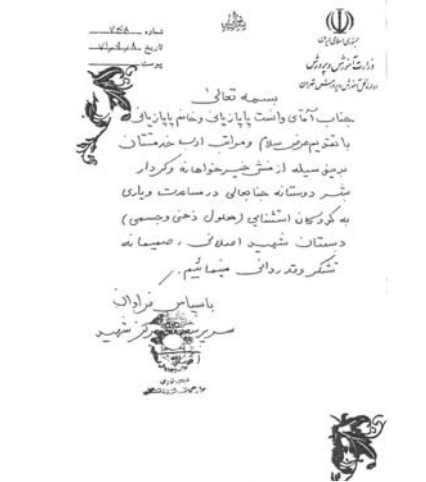 جمهوری اسلامی ایران
وزارت آموزش و پرورش
اداره کل آموزش و پرورش تهران
شماره
تاریخ
پیوست
بسمه تعالی
جناب آقای پاپازیان وخانم پاپازیان
با تقدیم عرض سلام ومراتب ادب خدمتتان
بدین وسیله از منش خیرخواهانه وکردار
بشر دوستانه جنابعالی در مساعدت ویاری
به کودکان استثنایی (معلول ذهنی وجسمی)
دبستان شهید اصلانی ، صمیمانه
تشکر وقدردانی مینمائیم.
باسپاس فراوان
شهید